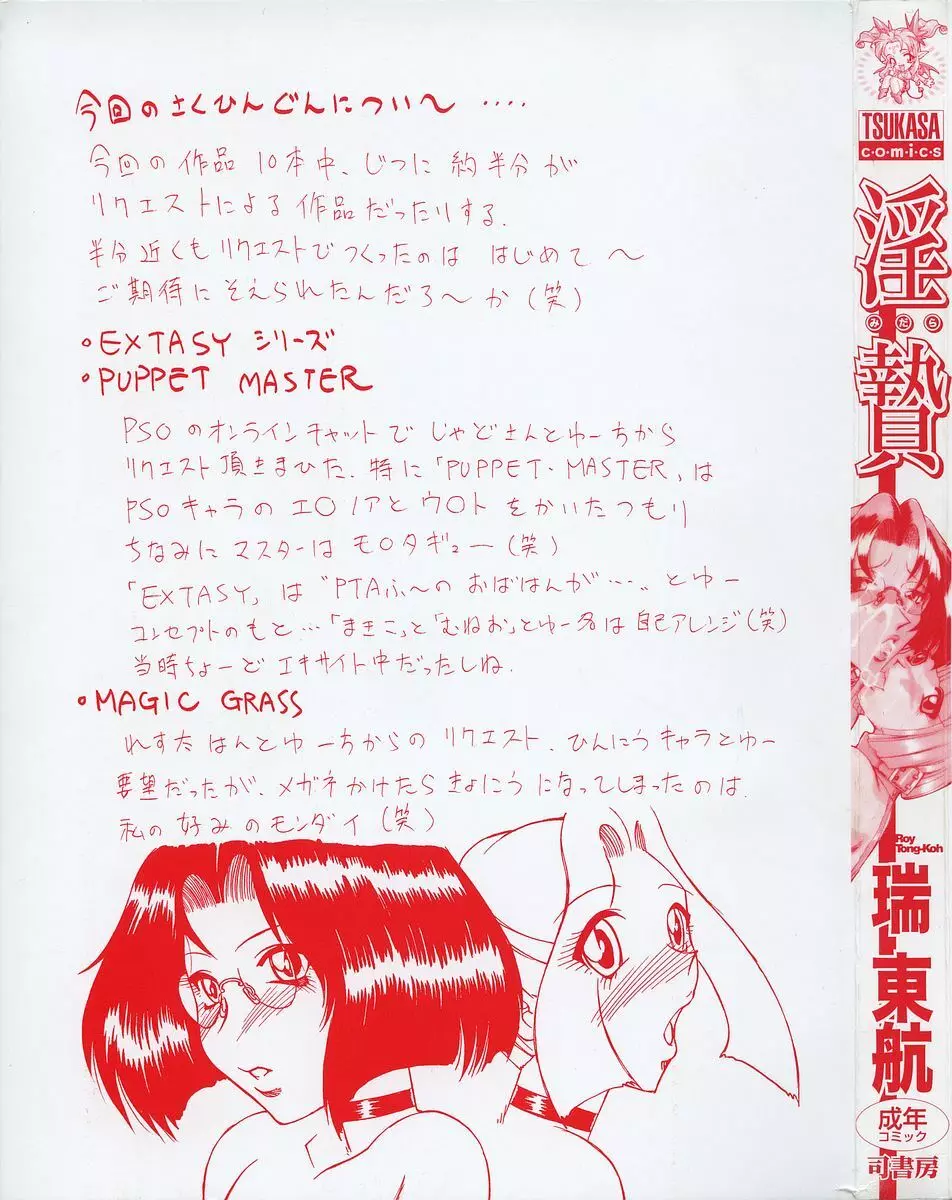 今回のさくひんぐんについ〜 ‥‥
今回の作品10本中、じつに約半分が
リクエストによる作品だったりする.
半分近くもリクエストでつくったのは はじめて〜
ご期待にそえられたんだろ〜か(笑)
•EXTASY シリーズ
•PUPPET MASTER
PSOのオンラインチャットで じゃどさんとゆーちから
リクエスト頂きまひた. 特に「PUPPET・MASTER」は
PSOキャラの エ〇ノアと ウ〇ト をかいたつもり
ちなみに マスターは モ〇タギュー(笑)
「EXTASY」は “PTAふ〜の おばはんが…” とゆー
コンセプトのもと…「まきこ」と「むねお」とゆー名は自己アレンジ(笑)
当時ちょーど エキサイト中だったしね.
•MAGIC GRASS
れすた はんとゆーちからの リクエスト. ひんにうキャラとゆー
要望だったが、メガネかけたら きょにう になってしまったのは.
私の好みのモンダイ (笑)
TSUKASA
c・o・m・i・c・s
淫贄
みだら
Roy
Tong-Koh
瑞東航
成年
コミック
司書房